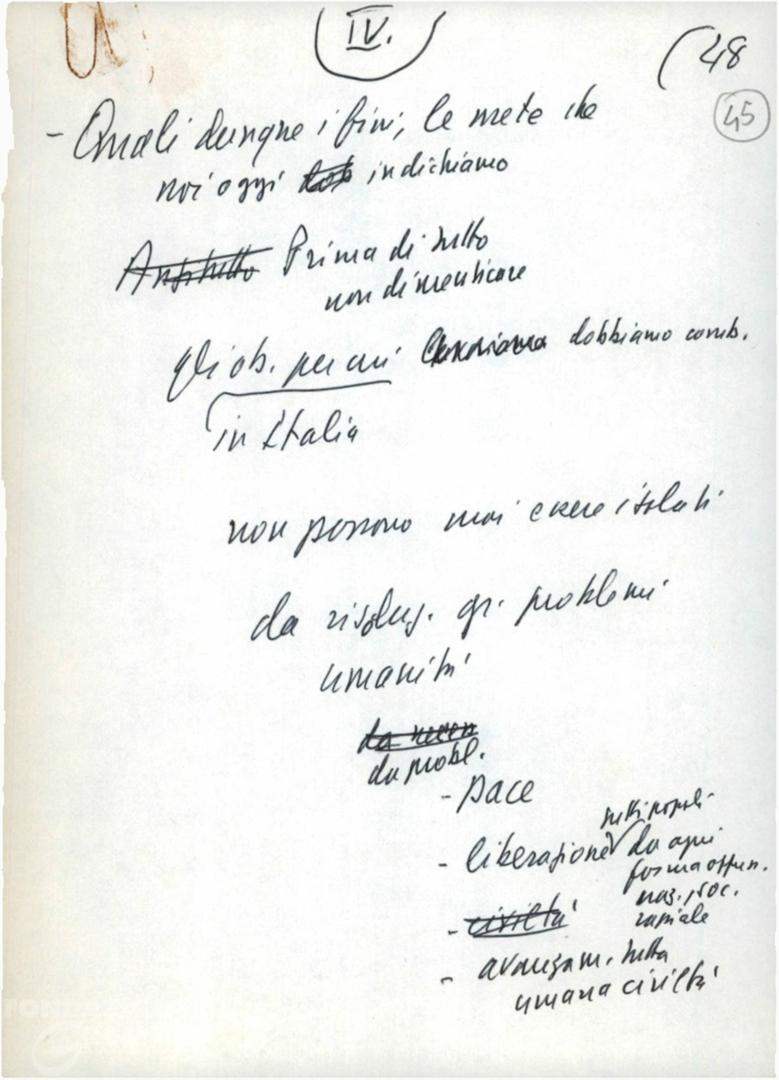 IV.
(48
45
- Quali dunque i fini, le mete che
noi oggi indichiamo
Anzitutto Prima di tutto
non dimenticare
gli ob. per cui dobbiamo comb.
in Italia
non possono mai essere isolati
da risoluz. gr. problemi
umanità
da probl.
- pace
tutti popoli
- liberazione da ogni
forma oppres.
naz. soc.
razziale
- civiltà
- avanzam. tutta
umana civiltà